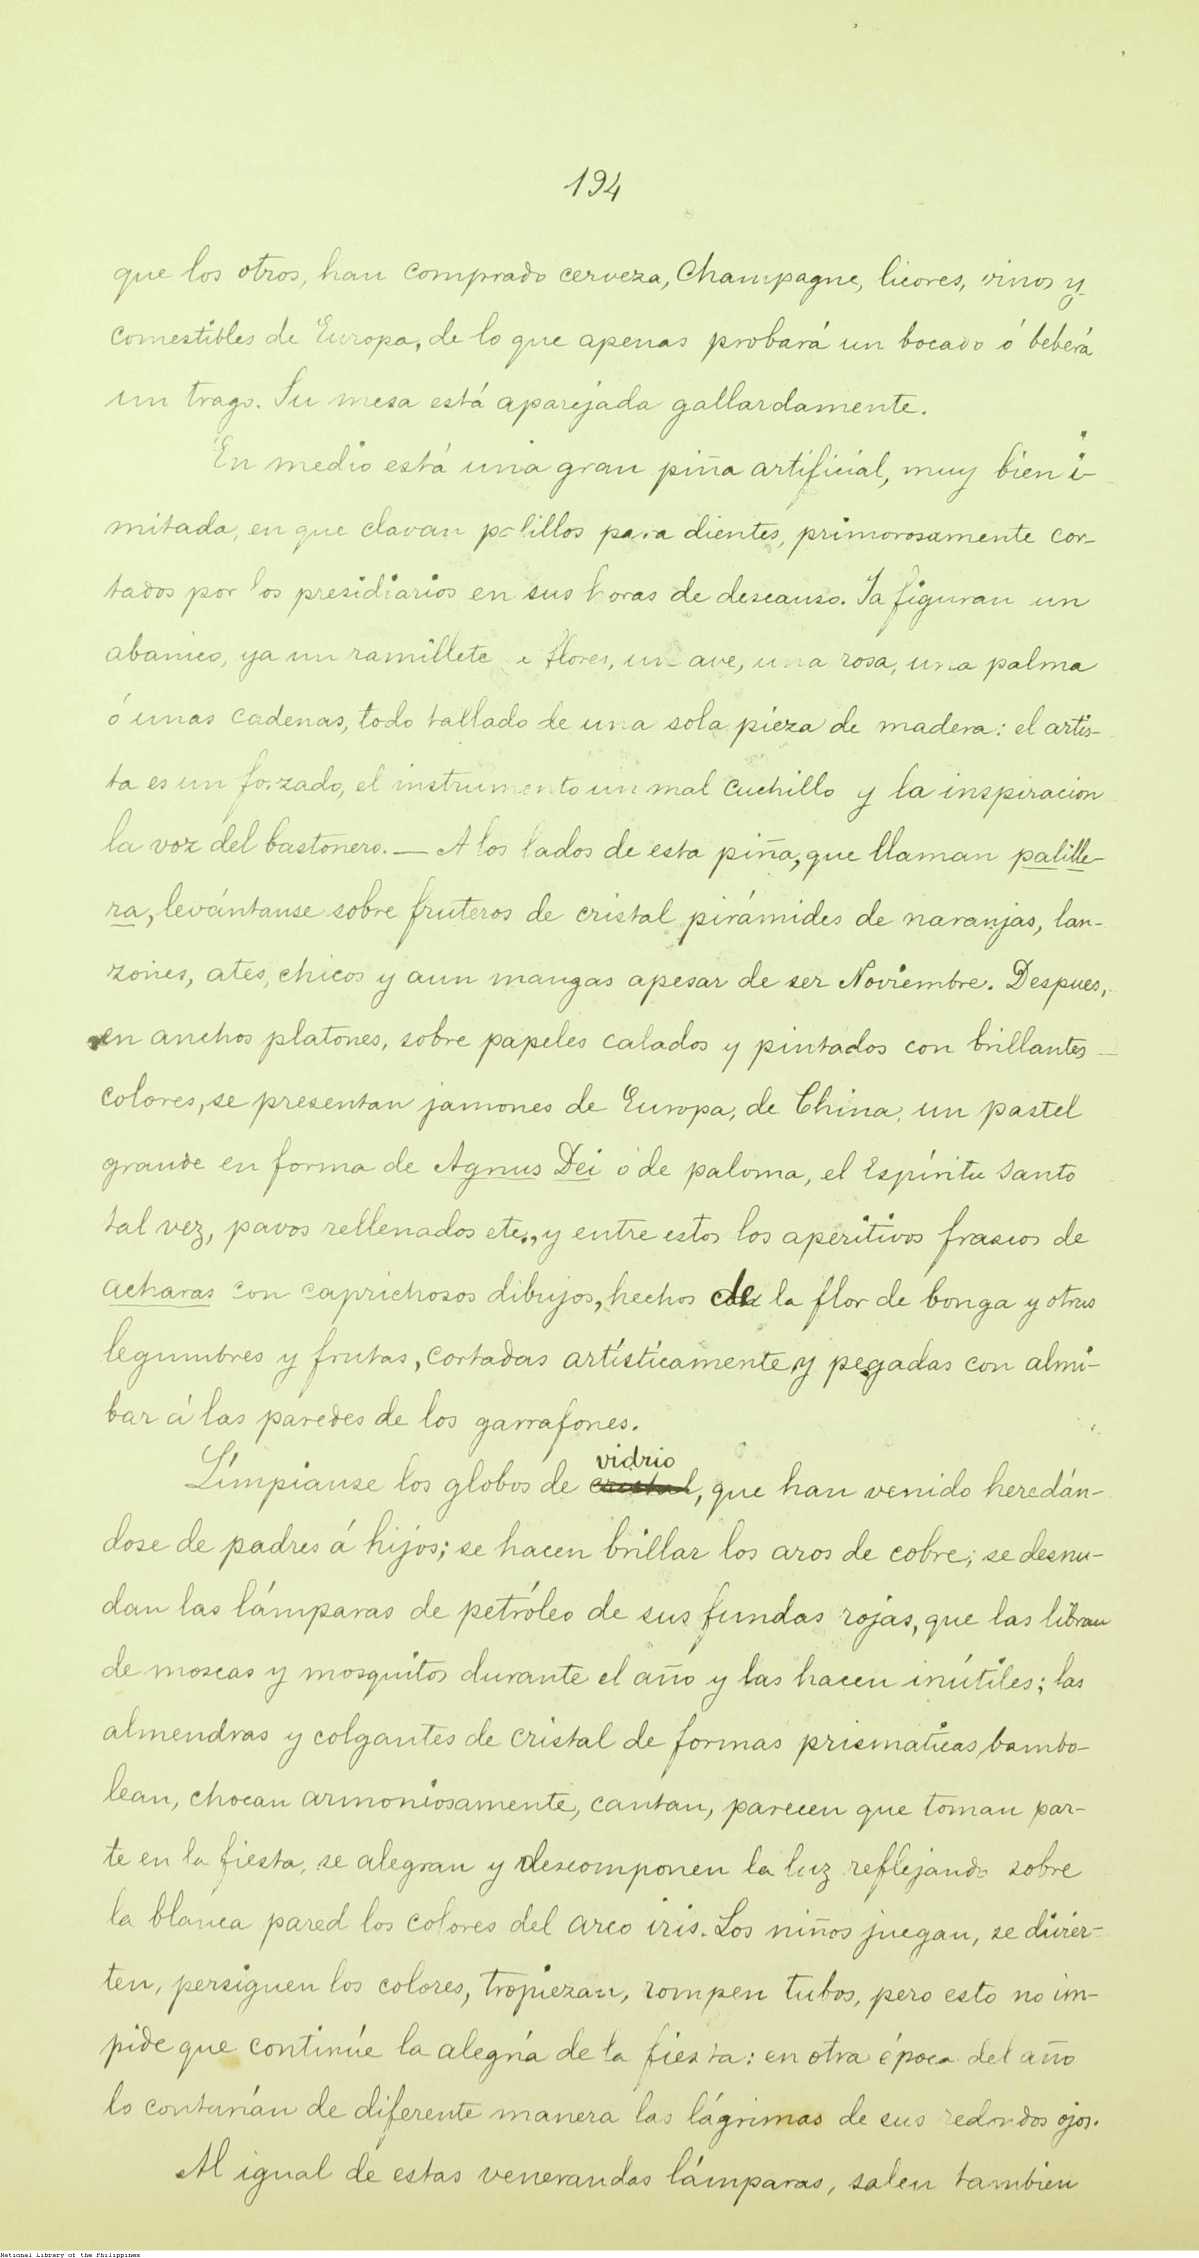 194
que los otros, han comprado cerveza, Champagne, licores, vinos y
comestibles de Europa, de lo que apenas probará un bocado ó beberá
un trago. Su mesa está aparejada gallardamente.
En medio está una gran piña artificial, muy bien i-
mitada, en que clavan palillos para dientes, primorosamente cor-
tados por los presidiarios en sus horas de descanso. Ya figuran un
abanico, ya un ramillete de flores, un ave, una rosa, una palma
ó unas cadenas, todo tallado de una sola pieza de madera: el artis-
ta es un forzado, el instrumento un mal cuchillo y la inspiracion
la voz del bastonero. — A los lados de esta piña, que llaman palille-
ra, levántanse sobre fruteros de cristal pirámides de naranjas, lan-
zones, ates, chicos y aun mangas apesar de ser Noviembre. Despues,
en anchos platones, sobre papeles calados y pintados con brillantes
colores, se presentan jamones de Europa, de China, un pastel
grande en forma de Agnus Dei ó de paloma, el Espíritu Santo
tal vez, pavos rellenados etc., y entre estos los aperitivos frascos de
acharas con caprichosos dibujos, hechos de la flor de bonga y otras
legumbres y frutas, cortadas artísticamente y pegadas con almí-
bar á las paredes de los garrafones.
Límpianse los globos de cristal vidrio, que han venido heredán-
dose de padres á hijos; se hacen brillar los aros de cobre; se desnu-
dan las lámparas de petróleo de sus fundas rojas, que las libran
de moscas y mosquitos durante el año y las hacen inútiles; las
almendras y colgantes de cristal de formas prismaticas bambo-
lean, chocan armoniosamente, cantan, parecen que toman par-
te en la fiesta, se alegran y descomponen la luz reflejando sobre
la blanca pared los colores del arco iris. Los niños juegan, se divier-
ten, persiguen los colores, tropiezan, rompen tubos, pero esto no im-
pide que continúe la alegría de la fiesta: en otra época del año
lo contarían de diferente manera las lágrimas de sus redondos ojos.
Al igual de estas venerandas lámparas, salen tambien
National Library of the Philippines